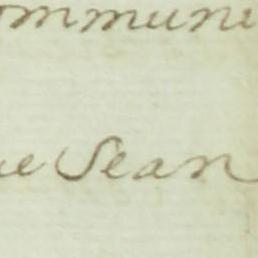 ommuni
ue Sean